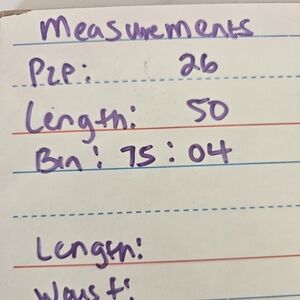 Measurements
P2P: 26
Length: 50
Bin: 75:04
Length:
Waist: